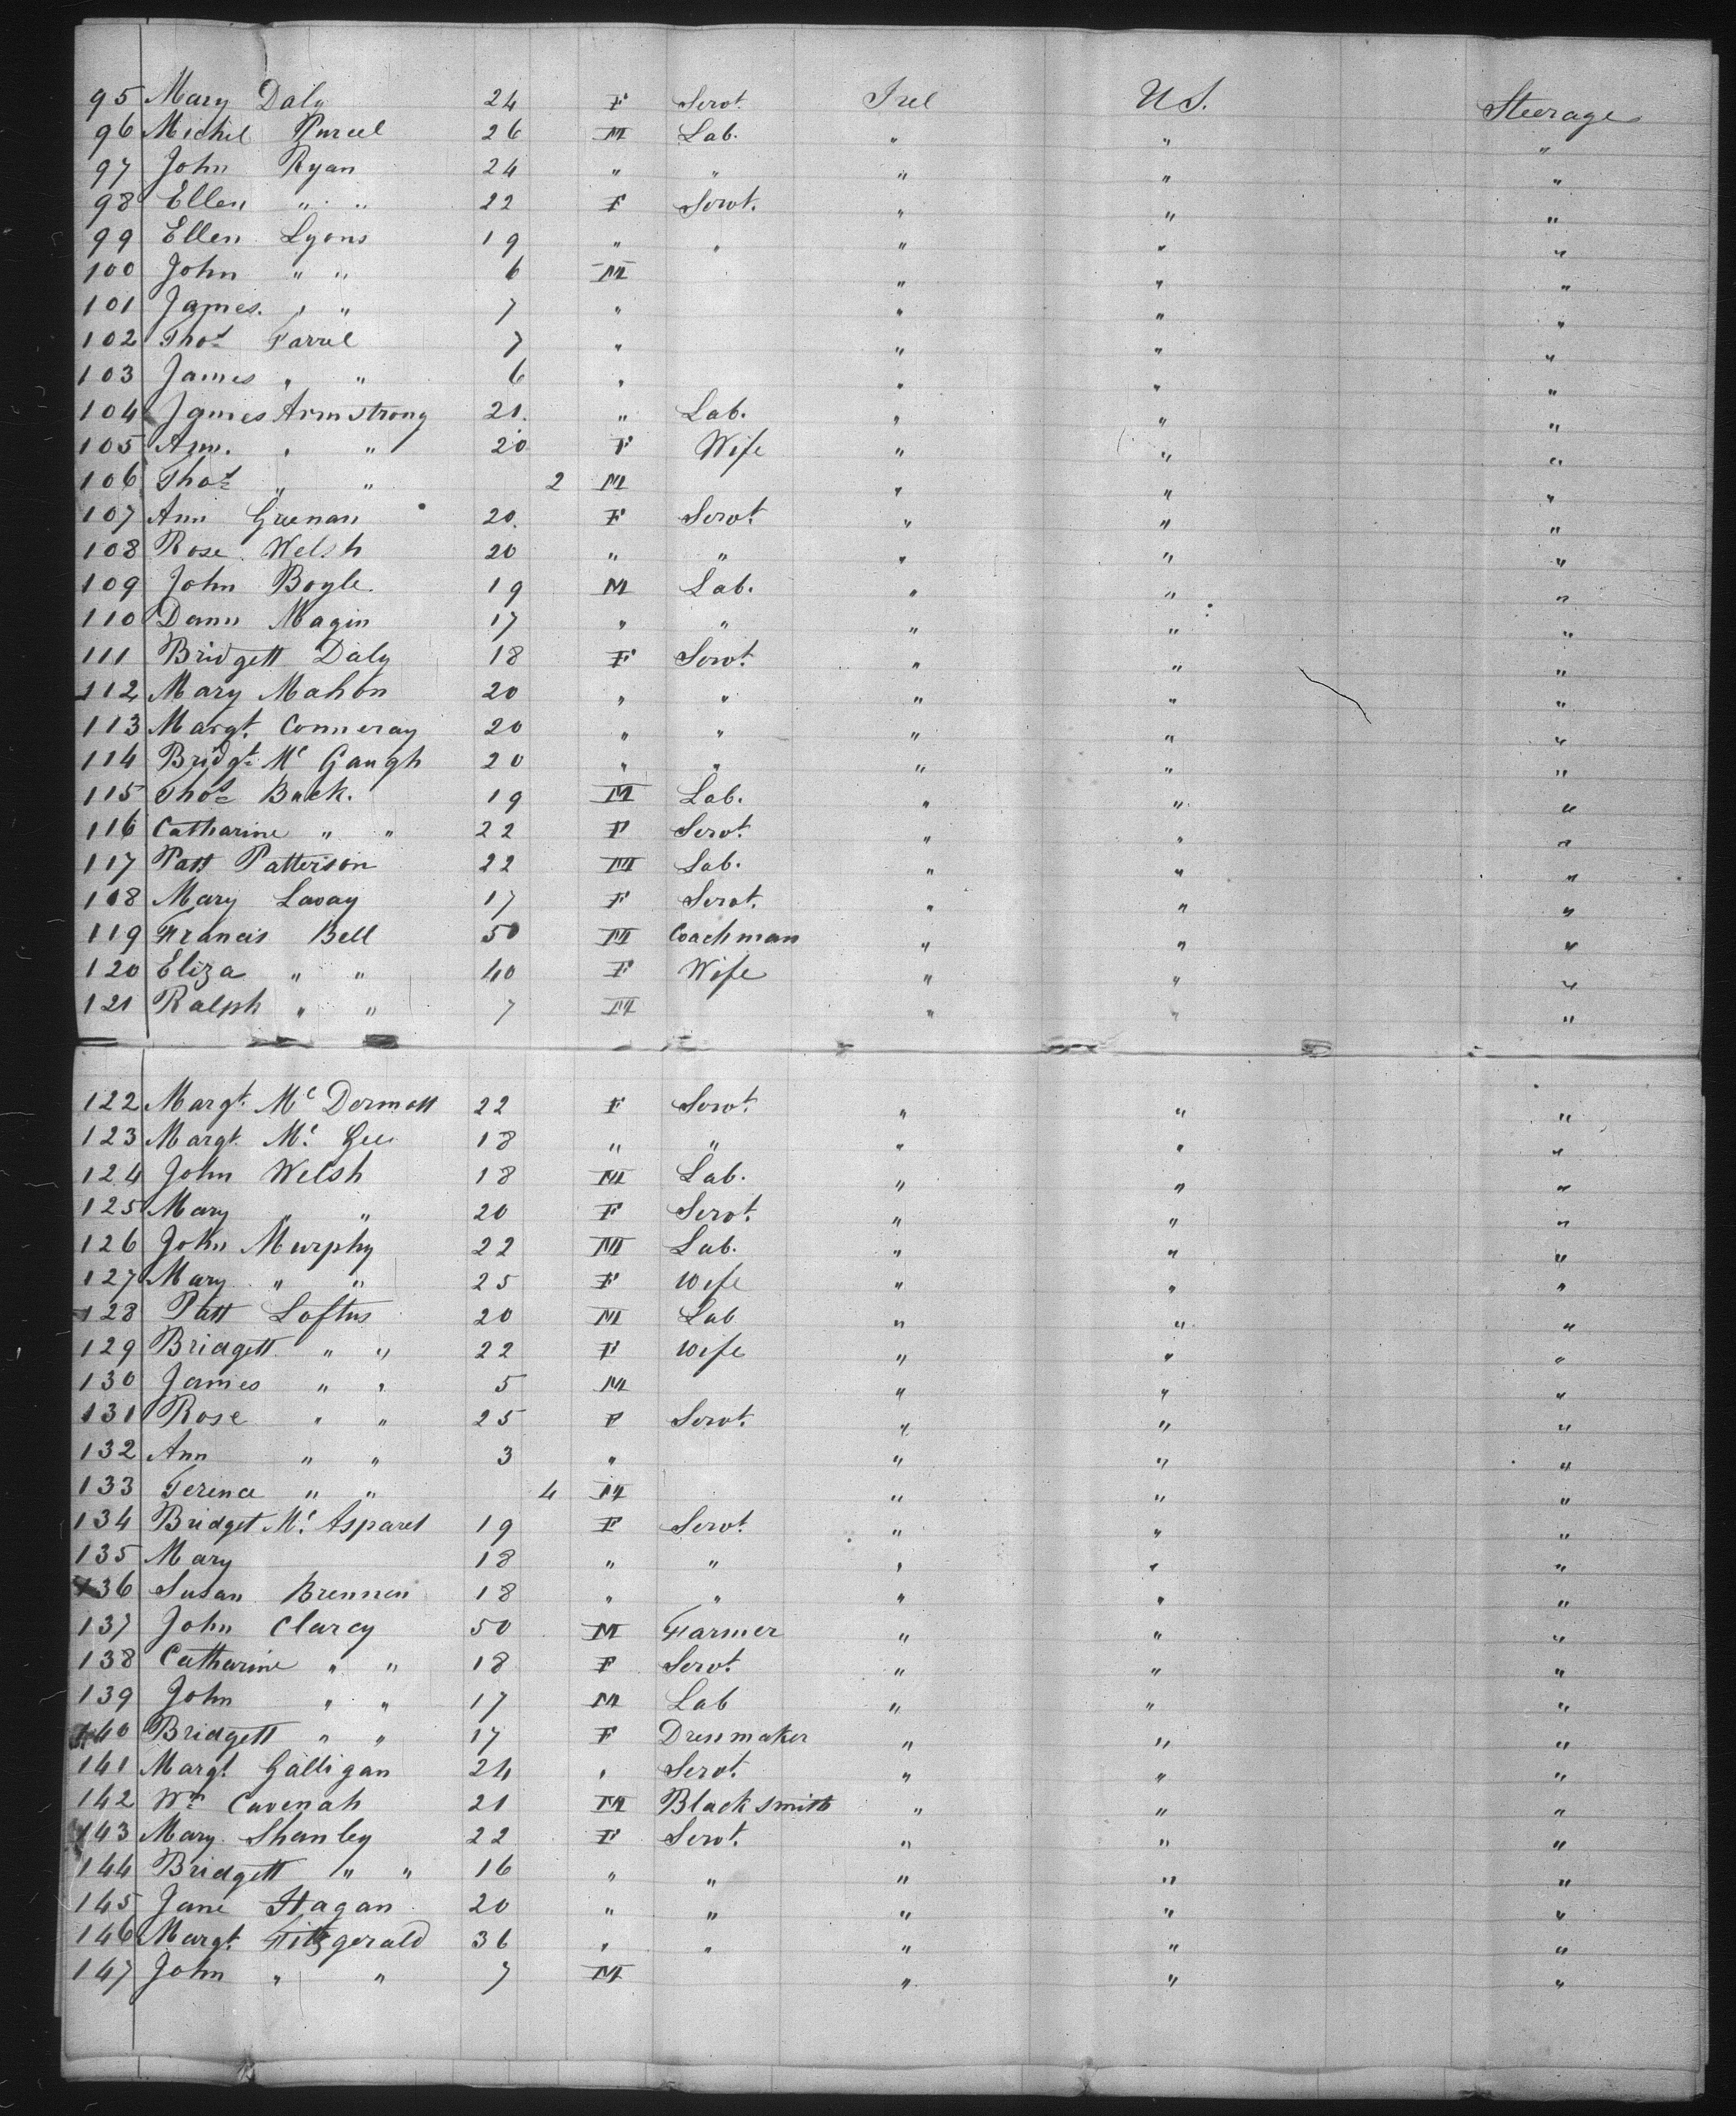 95 Mary Daly 24 F Servt. Irel U S. Steerage
96 Michel Purcel 26 M Lab. " " "
97 John Ryan 24 " " " " "
98 Ellen " " 22 F Servt. " " "
99 Ellen Lyons 19 " " " " "
100 John " " 6 M " " "
101 James. " " 7 " " " "
102 Thos Farrel 7 " " " "
103 James " " 6 " " " "
104 James Armstrong 21. " Lab. " " "
105 Ann. " " 20 F Wife " " "
106 Thos " " 2 M " " "
107 Ann Greenan 20. F Servt. " " "
108 Rose Welsh 20 " " " " "
109 John Boyle. 19 M Lab. " " "
110 Dann Magin 17 " " " " "
111 Bridgett Daly 18 F Servt. " " "
112 Mary Mahon 20 " " " " "
113 Margt. Conneray 20 " " " " "
114 Bridgt. Mc Gaugh 20 " " " " "
115 Thos Back. 19 M Lab. " " "
116 Catharine " " 22 F Servt. " " "
117 Patt Patterson 22 M Lab. " " "
118 Mary Lavay 17 F Servt. " " "
119 Francis Bell 50 M Coachman " " "
120 Eliza " " 40 F Wife " " "
121 Ralph " " 7 M " " "
122 Margt. Mc Dermott 22 F Servt. " " "
123 Margt. Mc Gee 18 " " " " "
124 John Welsh 18 M Lab. " " "
125 Mary " " 20 F Servt. " " "
126 John Murphy 22 M Lab. " " "
127 Mary " " 25 F Wife " " "
128 Patt Loftus 20 M Lab " " "
129 Bridgett " " 22 F Wife " " "
130 James " " 5 M " " "
131 Rose " " 25 F Servt. " " "
132 Ann " " 3 " " " "
133 Terence " " 4 M " " "
134 Bridget Mc Asparet 19 F Servt. " " "
135 Mary 18 " " " " "
136 Susan Brennen 18 " " " " "
137 John Clarcy 50 M Farmer " " "
138 Catharine " " 18 F Servt. " " "
139 John " " 17 M Lab " " "
140 Bridgett " " 17 F Dressmaker " " "
141 Margt. Galligan 24 " Servt. " " "
142 Wm Cavenah 21 M Blacksmith " " "
143 Mary Shanley 22 F Servt. " " "
144 Bridgett " " 16 " " " " "
145 Jane Hagan 20 " " " " "
146 Margt. Fitzgerald 36 " " " " "
147 John " " 7 M " " "